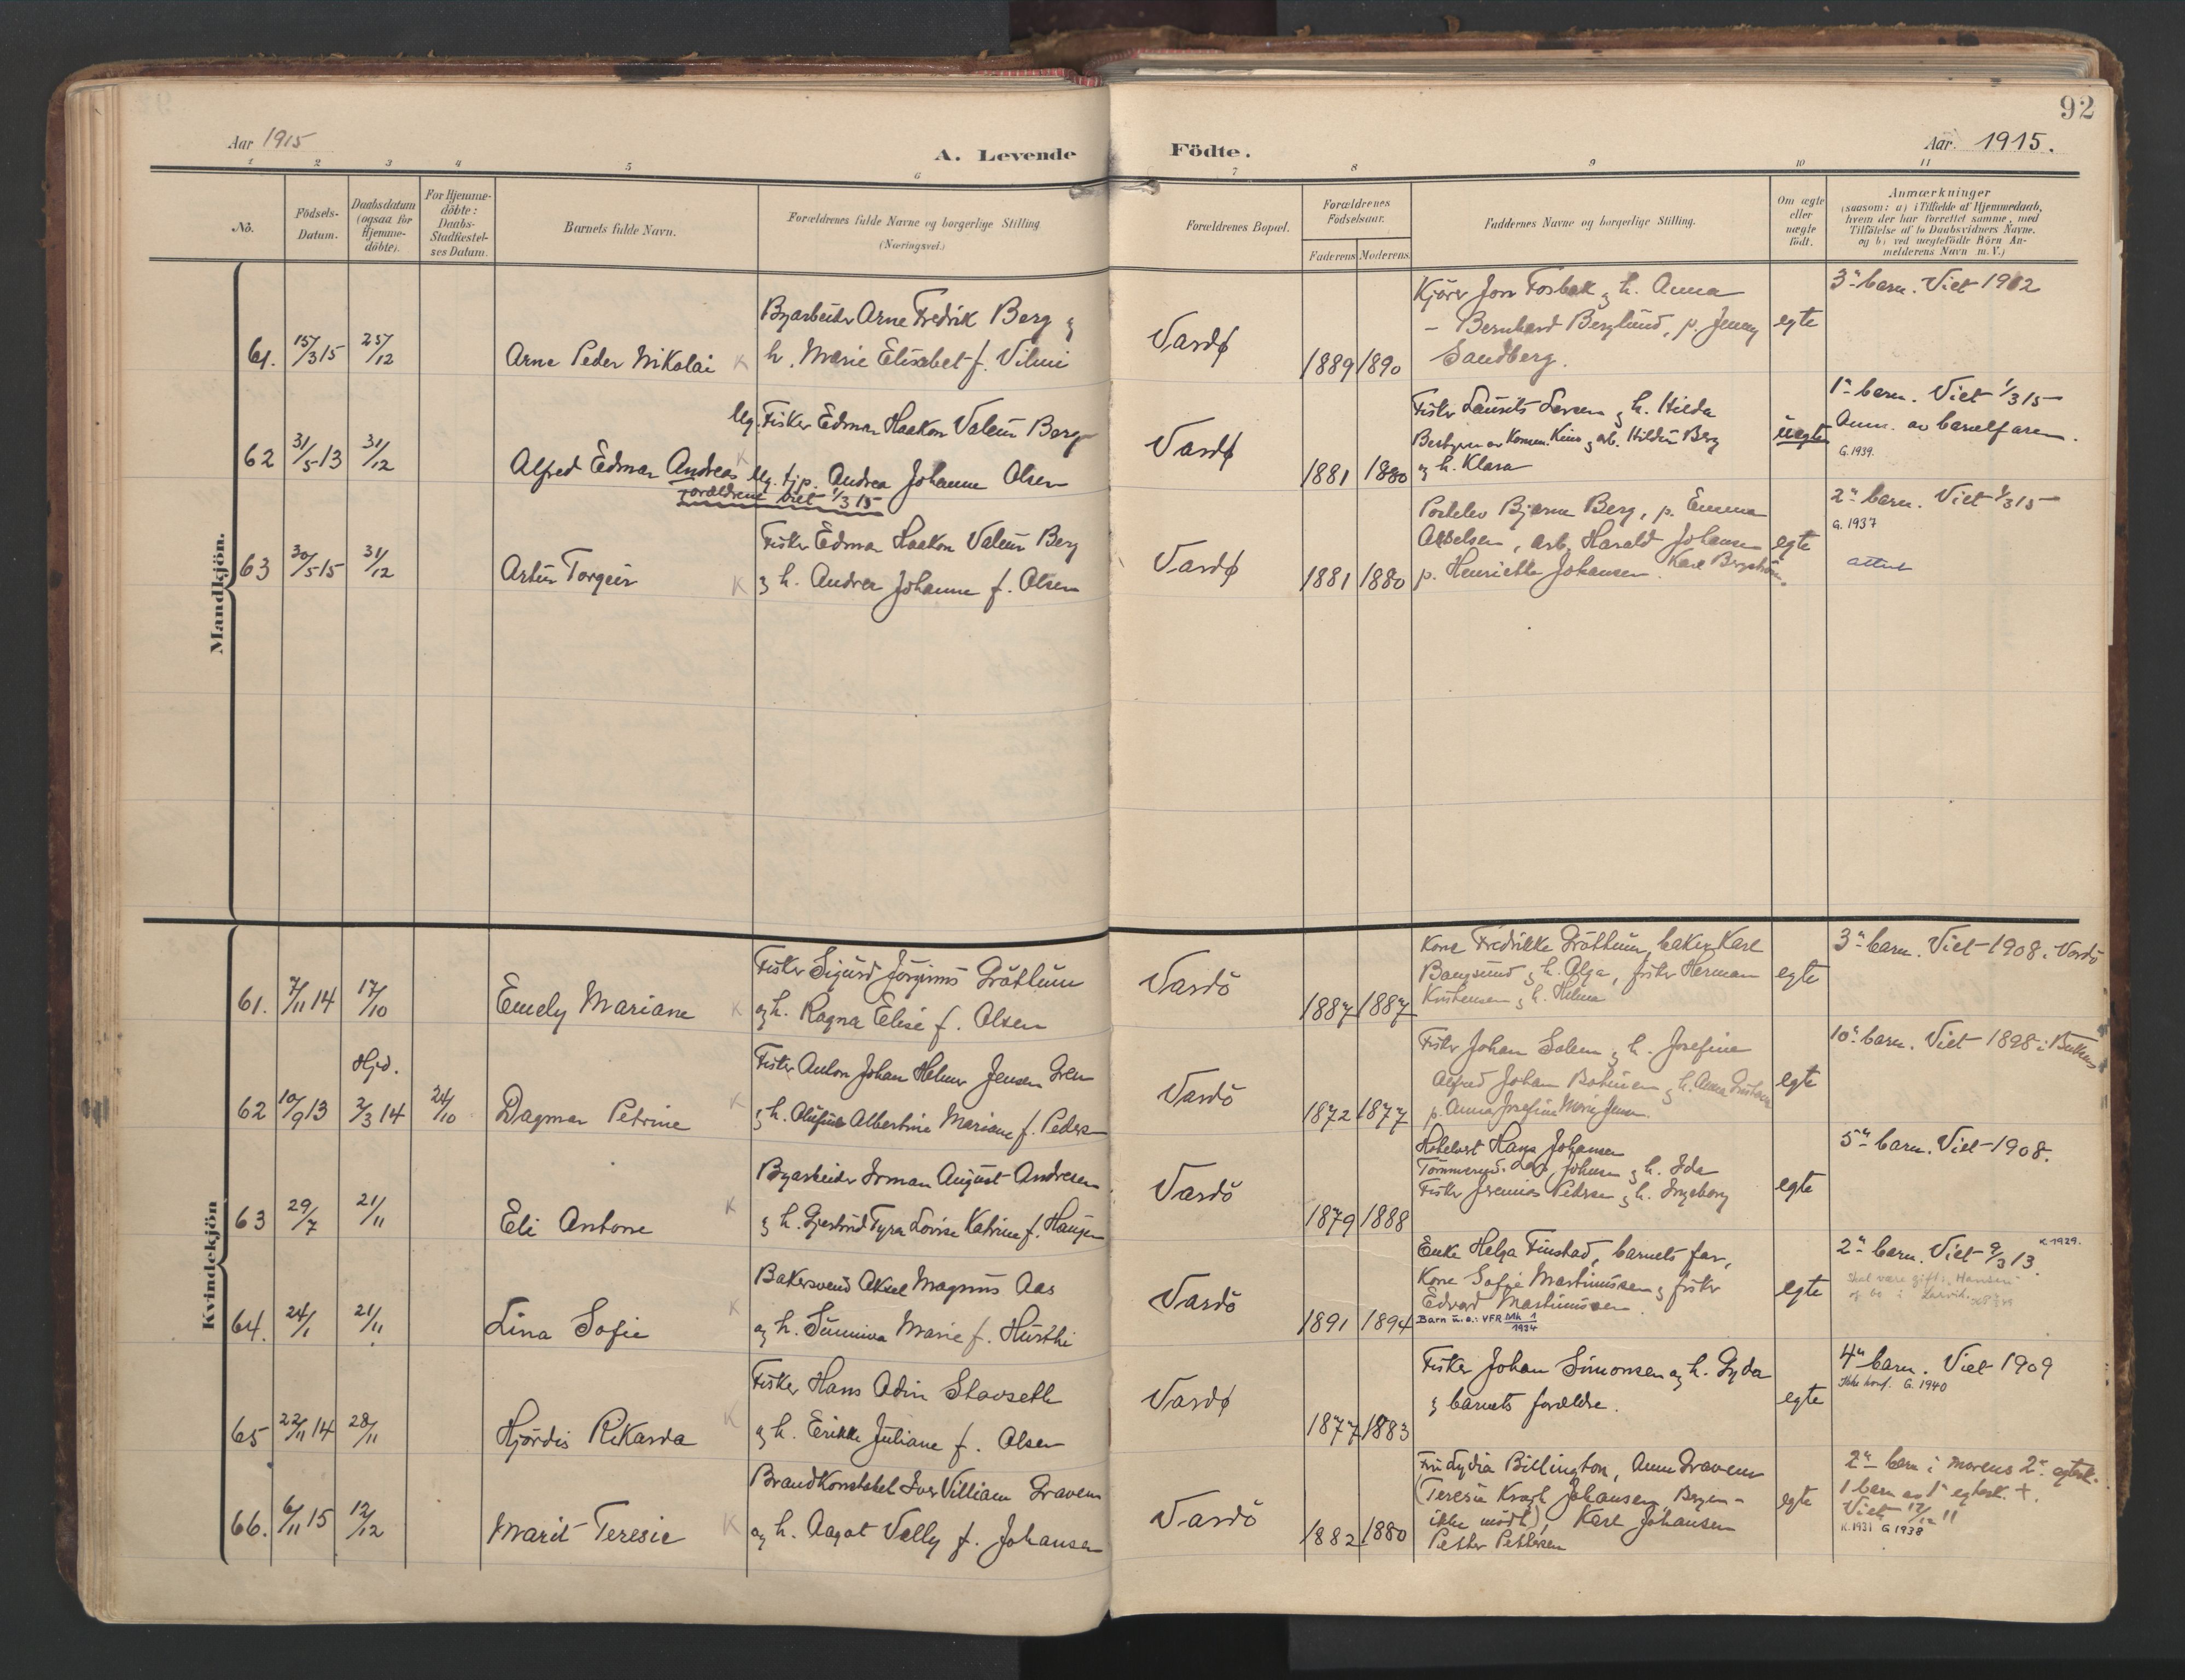 92
Aar 1915
A. Levende Födte.
Aar. 1915.
1 2 3 4 5 6 7 8 9 10 11
No.
Födsels-
Datum.
Daabsdatum
(ogsaa for
Hjemme-
döbte).
For Hjemme-
döbte:
Daabs-
Stadfæstel-
ses Datum.
Barnets fulde Navn.
Forældrenes fulde Navne og borgerlige Stilling
(Næringsvei.)
Forældrenes Bopæl.
Forældrenes
Födselsaar.
Faderens Moderens
Faddernes Navne og borgerlige Stilling.
Om ægte
eller
uægte
födt.
Anmærkninger
(saasom: a) i Tilfælde af Hjemmedaab,
hvem der har forrettet samme, med
Tilföielse af to Daabsvidners Navne,
og b) ved uægtefödte Börn An-
melderens Navn m. V.)
Mandkjön.
61. 15/3 15 25/12 Arne Peder Nikolai K
Byarbeider Arne Fredrik Berg og
h. Marie Elisabet f. Vilmi
Vardø
1889 1890
Kjører Jon Fosbak og h. Anna
- Bernhard Berglund, p. Jenny
Sandberg.
egte
3' barn. Viet 1912
62 31/5 13 31/12 Alfred Edmar Andreas K
Forældrene viet 1/3 15
Ug. Fisker Edmar Haakon Valeur Berg
Ug. tjp. Andrea Johanne Olsen
Vardø
1881 1880
Fisker Laurits Larsen og h. Hilda
Bestyrer av Komm. Kino og arb. Hildur Berg
og h. Klara
uegte
1' barn. Viet 1/3 15
Anm. av barnefaren.
G. 1939.
63 30/5 15 31/12 Artur Torgeir K
Fisker Edmar Haakon Valeur Berg
og h. Andrea Johanne f. Olsen
Vardø
1881 1880
Postelev Bjarne Berg, p. Emma
Abelsen, arb. Harald Johansen
p. Henriette Johansen. Karl Bergstrøm.
egte
2' barn. Viet 1/3 15
G. 1937
attest
Kvindekjön
61. 7/11 14 17/10 Emely Mariane K
Fisker Sigurd Jörginus Gröttum
og h. Ragna Elise f. Olsen
Vardö
1887 1887
Kone Fredrikke Gröttum, baker Karl
Bangsund og h. Olga, fisker Herman
Kristensen og h. Helma
egte
3' barn. Viet 1908. Vardö
Hjd.
62 10/9 13 2/3 14 24/10 Dagmar Petrine K
Fisker Anton Johan Helmer Jensen
og h. Olufine Albertine Mariane f. Peders
Vardö
1872 1877
Fisker Johan Solem og h. Josefine
Alfred Johan og h. Anna
p. Anna Josefine Marie Jensen.
egte
10' barn. Viet 1898 i
63 29/7 21/11 Eli Antone K
Byarbeider Irman August Andresen
og h. Gjertrud Tyra Lovise Katrine f. Hansen
Vardö
1879 1888
Hotelvert Hans Johansen
Tömmermd. Johnsen og h. Ida
Fisker Jremias Pedersen og h. Ingeborg
egte
5' barn. Viet 1908.
64. 24/1 21/11 Lina Sofie K
Bakersvend Aksel Magnus Aas
og h. Sunniva Marie f. Hursthi
Vardö
1891 1894
Enke Helga Finstad, barnets far,
Kone Sofie Martinussen og fisker
Edvard Martinussen.
Barn u.e.: VFR Mk 1
1934
egte
2' barn. Viet 9/3 13.
K. 1929.
Skal være gift: Hansen
og bo i Larvik.
65 22/11 14 28/11 Hjördis Rikarda K
Fisker Hans Odin Stavseth
og h. Erikke Juliane f. Olsen
Vardø
1877 1883
Fisker Johan Simonsen og h. Gyda
og barnets forældre.
egte
4' barn. Viet 1909
Ikke konf. G. 1940
66. 6/11 15 12/12 Marit Teresie K
Brandkonstabel Iver Villiam Gravem
og h. Aagot Vally f. Johansen
Vardö
1882 1880
Fru Lydia Billington, Anna Gravem
(Teresia Krogh Johansen, Bergen -
ikke mödt), Karl Johansen
Petter Pettersen
egte
2' barn i morens 2' egtesk.
1 barn av 1' egtesk. +.
Viet 17/12 11
K. 1931 G 1938